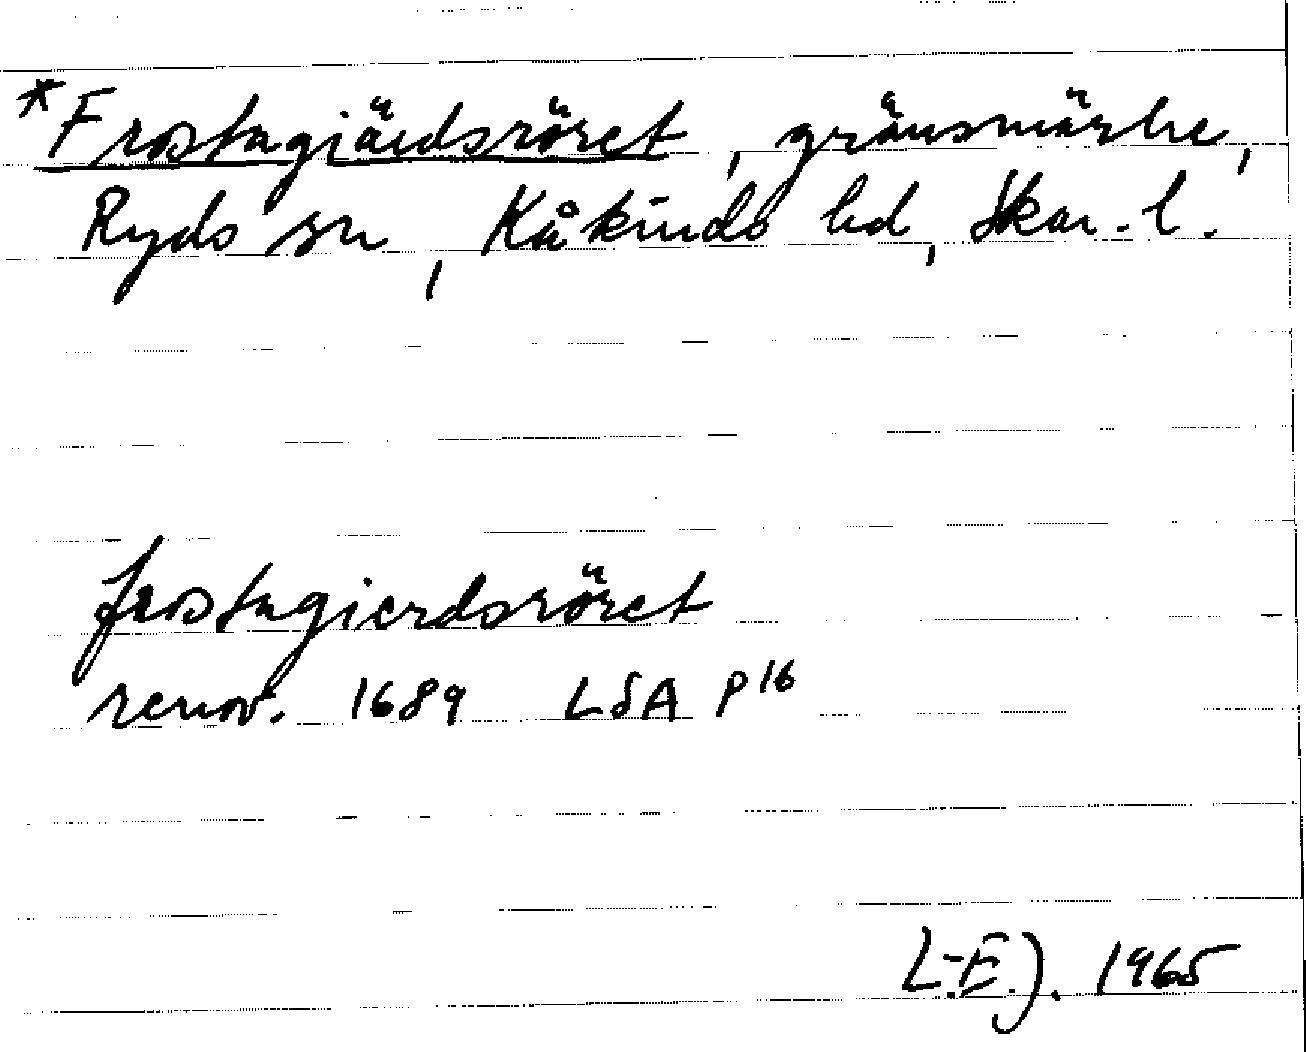 *Frostagiärdsröret, gränsmärke,
Ryds sn, Kåkinds hd, Skar. l.
frostagierdsröret
renov. 1689 LSA P 16
L-E.J. 1965